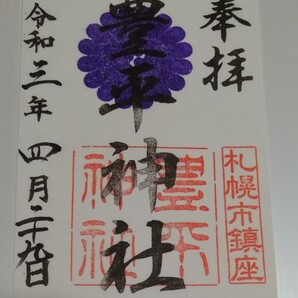 奉拝
札幌市鎮座
豊平神社
豊平神社
令和三年四月二十九日